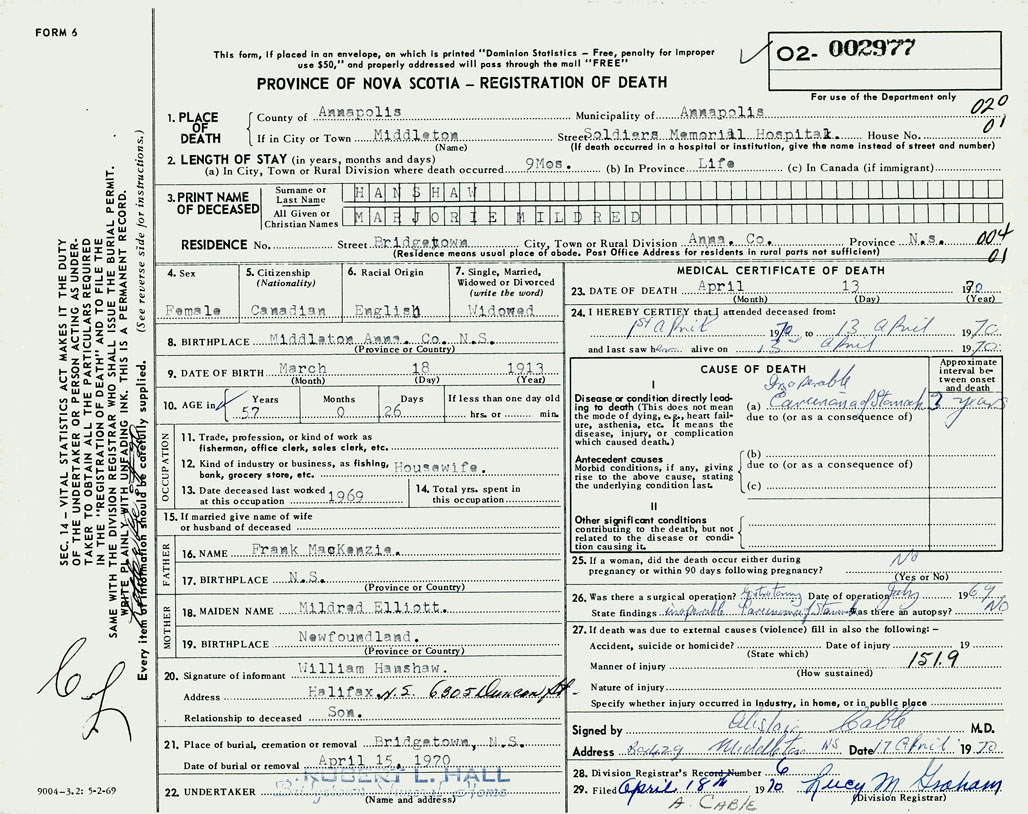 FORM 6
This form, if placed in an envelope, on which is printed "Dominion Statistics — Free, penalty for improper
use $50," and properly addressed will pass through the mail "FREE"
O2- 002977
PROVINCE OF NOVA SCOTIA — REGISTRATION OF DEATH
For use of the Department only
020
01
1. PLACE OF DEATH
County of Annapolis Municipality of Annapolis
If in City or Town Middleton Street Soldiers Memorial Hospital. House No.
(Name) (If death occurred in a hospital or institution, give the name instead of street and number)
2. LENGTH OF STAY (in years, months and days)
(a) In City, Town or Rural Division where death occurred 9Mos. (b) In Province Life (c) In Canada (if immigrant)
3. PRINT NAME OF DECEASED
Surname or Last Name HANSHAW
All Given or Christian Names MARJORIE MILDRED
RESIDENCE No. Street Bridgetown City, Town or Rural Division Anna. Co. Province N.s. 004
(Residence means usual place of abode. Post Office Address for residents in rural parts not sufficient) 01
4. Sex
Female
5. Citizenship (Nationality)
Canadian
6. Racial Origin
English
7. Single, Married, Widowed or Divorced (write the word)
Widowed
8. BIRTHPLACE Middleton Anna. Co. N.S.
(Province or Country)
9. DATE OF BIRTH March 18 1913
(Month) (Day) (Year)
10. AGE in Years Months Days If less than one day old
57 0 26 hrs. or min.
OCCUPATION
11. Trade, profession, or kind of work as
fisherman, office clerk, sales clerk, etc.
12. Kind of industry or business, as fishing, Housewife.
bank, grocery store, etc.
13. Date deceased last worked at this occupation 1969
14. Total yrs. spent in this occupation
15. If married give name of wife
or husband of deceased
FATHER
16. NAME Frank MacKenzie.
17. BIRTHPLACE N.S.
(Province or Country)
MOTHER
18. MAIDEN NAME Mildred Elliott.
19. BIRTHPLACE Newfoundland.
(Province or Country)
20. Signature of informant William Hanshaw.
Address Halifax, N.S. 6305 Duncan St-
Relationship to deceased Son.
21. Place of burial, cremation or removal Bridgetown, N.S.
Date of burial or removal April 15, 1970
22. UNDERTAKER ROBERT L. HALL
(Name and address)
MEDICAL CERTIFICATE OF DEATH
23. DATE OF DEATH April 13 1970
(Month) (Day) (Year)
24. I HEREBY CERTIFY that I attended deceased from:
1st April 1970 to 13 April 1970
and last saw her alive on 13 April 1970
CAUSE OF DEATH
Approximate interval between onset and death
I
Disease or condition directly leading to death (This does not mean the mode of dying, e.g., heart failure, asthenia, etc. It means the disease, injury, or complication which caused death.)
Inoperable
(a) Carcinoma of Stomach 3 years
due to (or as a consequence of)
Antecedent causes
Morbid conditions, if any, giving rise to the above cause, stating the underlying condition last.
(b)
due to (or as a consequence of)
(c)
II
Other significant conditions
contributing to the death, but not related to the disease or condition causing it.
25. If a woman, did the death occur either during No
pregnancy or within 90 days following pregnancy?
(Yes or No)
26. Was there a surgical operation? Date of operation July 1969
State findings inoperable Carcinoma of Stomach Was there an autopsy? NO
27. If death was due to external causes (violence) fill in also the following: —
Accident, suicide or homicide? Date of injury 19
(State which)
Manner of injury 151.9
(How sustained)
Nature of injury
Specify whether injury occurred in industry, in home, or in public place
Signed by Alistair Cable M.D.
Address Middleton NS Date 17 April 1970
28. Division Registrar's Record Number 6
29. Filed April 18th 1970 Lucy M Graham
A. CABLE (Division Registrar)
SEC. 14 — VITAL STATISTICS ACT MAKES IT THE DUTY
OF THE UNDERTAKER OR PERSON ACTING AS UNDER-
TAKER TO OBTAIN ALL THE PARTICULARS REQUIRED
IN THE "REGISTRATION OF DEATH" AND TO FILE THE
SAME WITH THE DIVISION REGISTRAR WHO SHALL ISSUE THE BURIAL PERMIT.
WRITE PLAINLY WITH UNFADING INK. THIS IS A PERMANENT RECORD.
Every item of information should be carefully supplied. (See reverse side for instructions.)
9004-3.2: 5-2-69